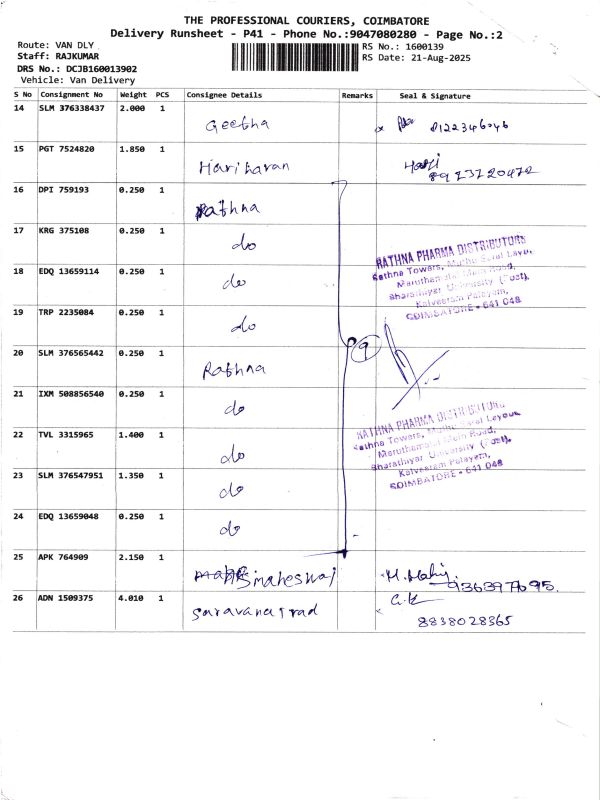 THE PROFESSIONAL COURIERS, COIMBATORE
Delivery Runsheet - P41 - Phone No.:9047080280 - Page No.:2
Route: VAN DLY
Staff: RAJKUMAR
DRS No.: DCJB160013902
Vehicle: Van Delivery
RS No.: 1600139
RS Date: 21-Aug-2025
S No Consignment No Weight PCS Consignee Details Remarks Seal & Signature
14 SLM 376338437 2.000 1 Geetha 8122346046
15 PGT 7524820 1.850 1 Hariharan Hari
16 DPI 759193 0.250 1 Rathna
17 KRG 375108 0.250 1 do
18 EDQ 13659114 0.250 1 do
19 TRP 2235084 0.250 1 do
20 SLM 376565442 0.250 1 Rathna
21 IXM 508856540 0.250 1 do
22 TVL 3315965 1.400 1 do
23 SLM 376547951 1.350 1 do
24 EDQ 13659048 0.250 1 do
9
RATHNA PHARMA DISTRIBUTORS
Rathna Towers, Muthu Saral Layout,
Maruthamalai Main Road,
Bharathiyar University (Post),
Kalveeram Palayam,
COIMBATORE - 641 046
RATHNA PHARMA DISTRIBUTORS
Rathna Towers, Muthu Saral Layout,
Maruthamalai Main Road,
Bharathiyar University (Post),
Kalveeram Palayam,
COIMBATORE - 641 046
25 APK 764909 2.150 1 M.
26 ADN 1509375 4.010 1 8838028365